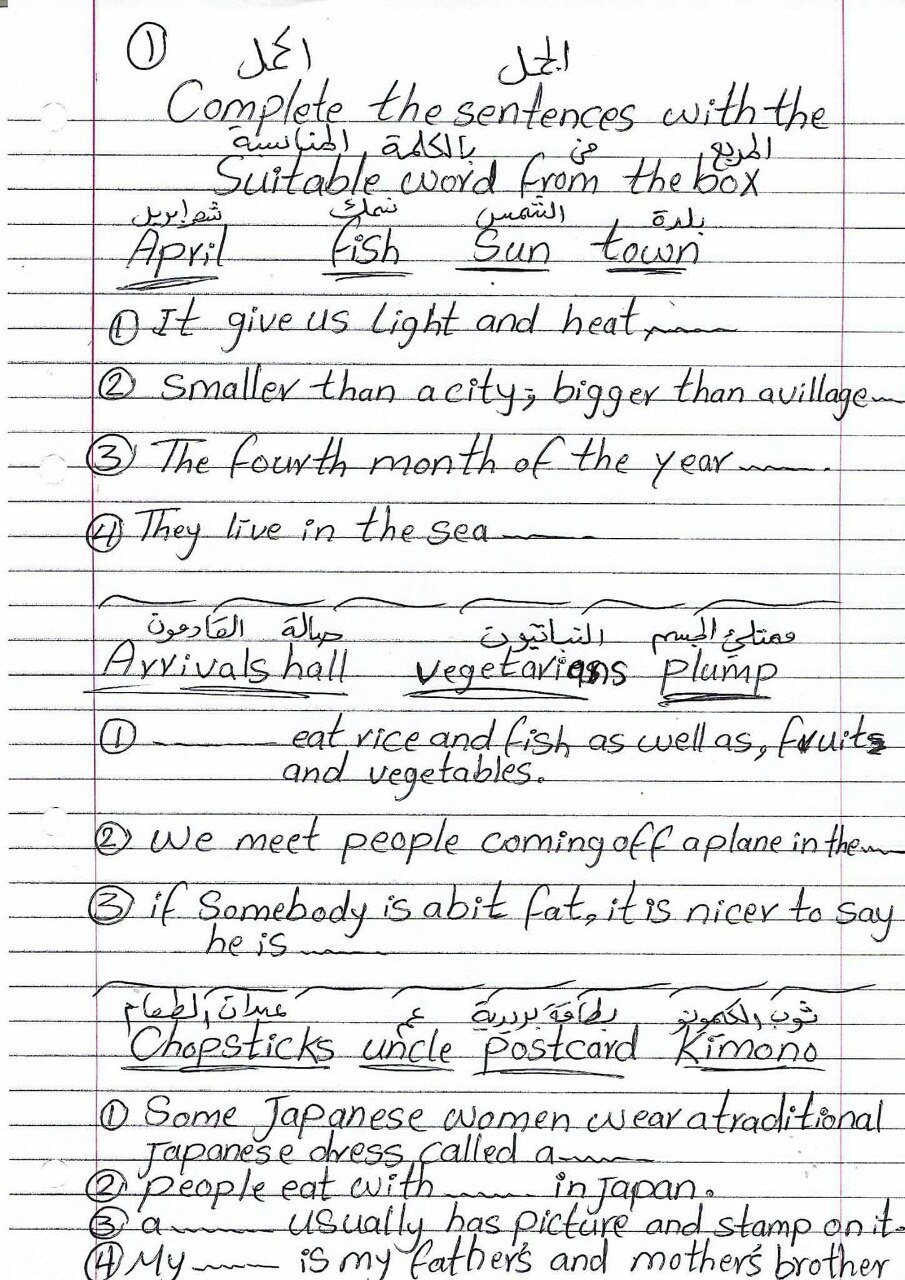 ①
اكمل الجمل
Complete the sentences with the
المناسبة بالكلمة من المربع
Suitable word from the box
شهر ابريل سمك الشمس بلدة
April fish Sun town
① It give us light and heat
② Smaller than a city, bigger than a village
③ The fourth month of the year
④ They live in the sea
صالة القادمون النباتيون ممتلئ الجسم
Arrivals hall vegetarians plump
① eat rice and fish as well as, fruits
and vegetables.
② We meet people coming off a plane in the
③ if Somebody is a bit fat, it is nicer to say
he is
عيدان الطعام عم بطاقة بريدية ثوب الكمونو
Chopsticks uncle postcard Kimono
① Some Japanese women wear a traditional
Japanese dress called a
② people eat with in Japan.
③ a usually has picture and stamp on it.
④ My is my father's and mother's brother